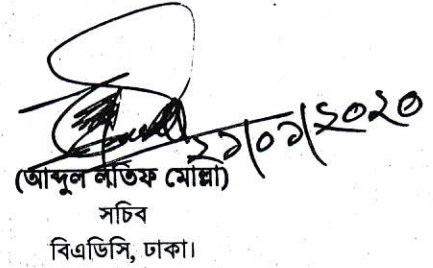 ২১/০১/২০২০
(আব্দুল লতিফ মোল্লা)
সচিব
বিএডিসি, ঢাকা।